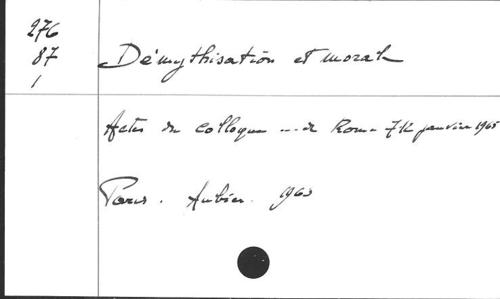 276
87
1
Démythisation et morale
Actes du colloque ... de Rome 7-12 janvier 1965
Paris. Aubier. 1965